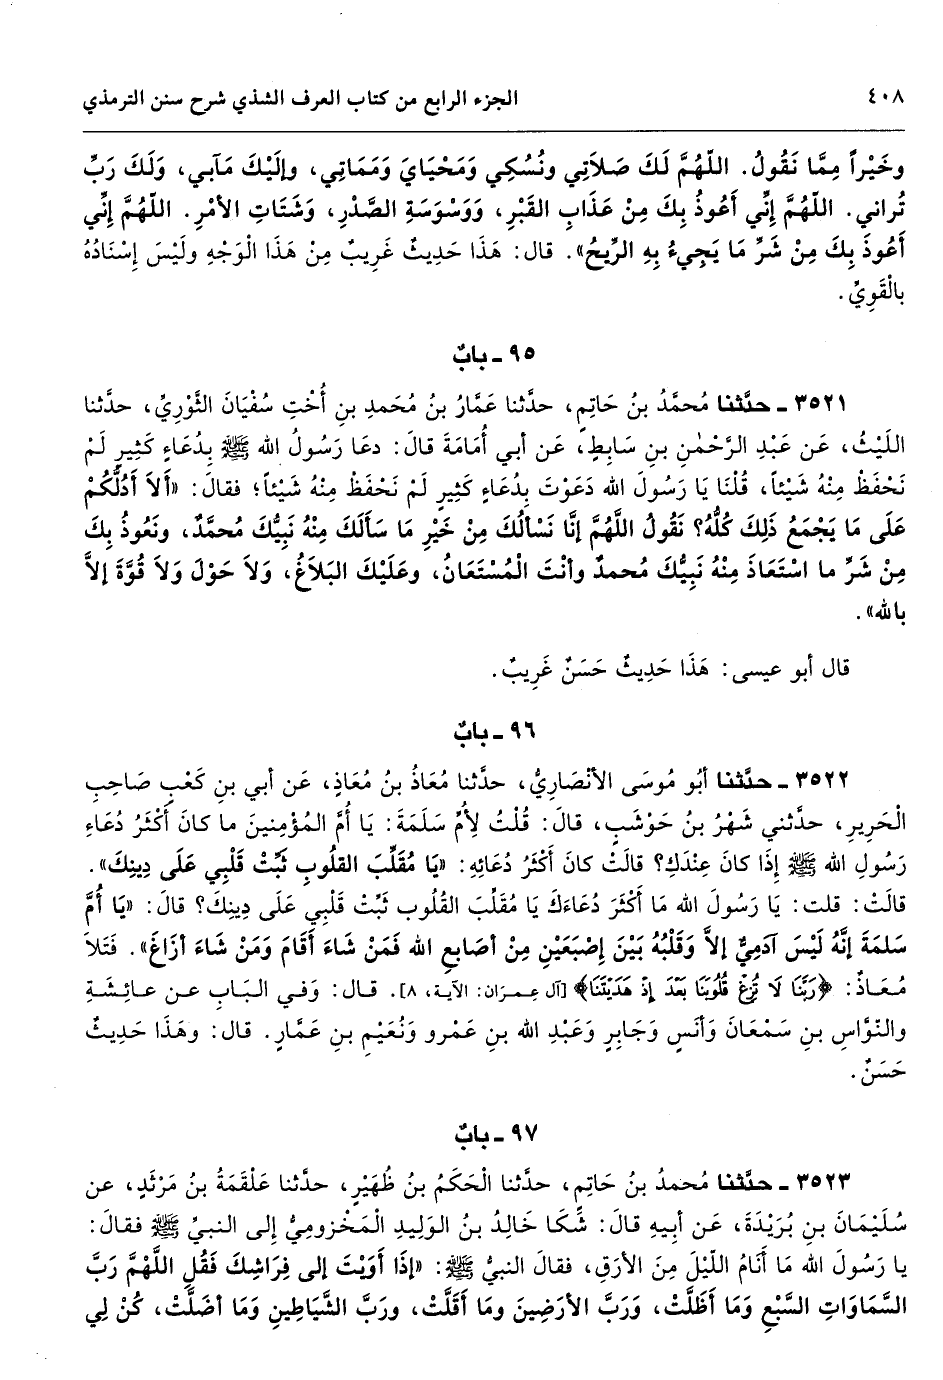 ٤٠٨ الجزء الرابع من كتاب العرف الشذي شرح سنن الترمذي
وخَيْراً مِمَّا نَقُولُ. اللّهُمَّ لَكَ صَلاَتِي ونُسُكِي وَمَحْيَايَ وَمَمَاتِي، وإلَيْكَ مَآبي، وَلَكَ رَبِّ
تُراثي. اللّهُمَّ إنِّي أَعُوذُ بِكَ مِنْ عَذَابِ القَبْرِ، وَوَسْوَسَةِ الصَّدْرِ، وَشَتَاتِ الأمْرِ. اللّهُمَّ إنِّي
أَعُوذ بِكَ مِنْ شَرِّ مَا يَجِيءُ بِهِ الرِّيحُ». قال: هَذَا حَدِيثٌ غَرِيبٌ مِنْ هَذَا الْوَجْهِ ولَيْسَ إسْنَادُهُ
بالْقَوِيِّ.
٩٥ ـ بابٌ
٣٥٢١ ـ حدَّثنا مُحمَّدُ بنُ حَاتِمٍ، حدَّثنا عَمَّارُ بنُ مُحَمدِ بنِ أُخْتِ سُفْيَانَ الثَّوْرِيِّ، حدَّثنا
اللَيْثُ، عَن عَبْدِ الرَّحْمٰنِ بنِ سَابِطٍ، عَن أبي أُمَامَةَ قالَ: دعَا رَسُولُ الله ﷺ بِدُعَاءٍ كَثِيرٍ لَمْ
نَحْفَظْ مِنْهُ شَيْئاً، قُلْنَا يَا رَسُولَ الله دَعَوْتَ بِدُعَاءٍ كَثِيرٍ لَمْ نَحْفَظْ مِنْهُ شَيْئاً؛ فقالَ: «أَلاَ أَدُلُّكُمْ
عَلَى مَا يَجْمَعُ ذَلِكَ كُلُّهُ؟ تَقُولُ اللَّهُمَّ إنَّا نَسْأَلُكَ مِنْ خَيْرِ مَا سَأَلَكَ مِنْهُ نَبِيُّكَ مُحمَّدٌ، ونَعُوذُ بِكَ
مِنْ شَرِّ ما اسْتَعَاذَ مِنْهُ نَبِيُّكَ مُحمدٌ وأنْتَ الْمُسْتَعَانُ، وعَلَيْكَ البَلاَغُ، وَلاَ حَوْلَ وَلاَ قُوَّةَ إلاَّ
بالله».
قال أبو عيسى: هَذَا حَدِيثٌ حَسَنٌ غَرِيبٌ.
٩٦ ـ بابٌ
٣٥٢٢ ـ حدَّثنا أبُو مُوسَى الأنْصَارِيُّ، حدَّثنا مُعَاذُ بنُ مُعَاذٍ، عَن أبي بنِ كَعْبٍ صَاحِبِ
الْحَرِيرِ، حدَّثني شَهْرُ بنُ حَوْشَبٍ، قالَ: قُلْتُ لِأُمِّ سَلَمَةَ: يَا أُمَّ المُؤْمِنينَ ما كانَ أَكْثَرُ دُعَاءِ
رَسُولِ الله ﷺ إِذَا كانَ عِنْدَكِ؟ قالَتْ كانَ أَكْثَرُ دُعَائِهِ: «يَا مُقَلِّبَ القلُوبِ ثَبِّتْ قَلْبِي عَلَى دِينِكَ».
قالَتْ: قلت: يَا رَسُولَ الله مَا أَكْثَرَ دُعَاءَكَ يَا مُقَلِّبَ القُلُوبِ ثَبِّتْ قَلْبِي عَلَى دِينِكَ؟ قالَ: «يَا أُمَّ
سَلَمَةَ إنَّهُ لَيْسَ آدَمِيٌّ إلاَّ وَقَلْبُهُ بَيْنَ إصْبَعَيْنِ مِنْ أصَابِعِ الله فَمَنْ شَاءَ أَقَامَ وَمَنْ شَاءَ أزَاغَ». فَتَلاَ
مُعَاذٌ: ﴿رَبَّنَا لَا تُزِغْ قُلُوبَنَا بَعْدَ إِذْ هَدَيْتَنَا﴾ [آل عمران: الآية، ٨]. قال: وَفي البَابِ عن عائِشَةِ
والنَّوَّاس بنِ سَمْعَانَ وَأنَسٍ وَجَابِرٍ وَعَبْدِ الله بنِ عَمْرو وَنُعَيْمِ بنِ عَمَّارٍ. قال: وهَذَا حَدِيثٌ
حَسَنٌ.
٩٧ ـ بابٌ
٣٥٢٣ ـ حدَّثنا مُحمدُ بنُ حَاتِمٍ، حدَّثنا الْحَكَمُ بنُ ظُهَيْرٍ، حدَّثنا عَلْقَمَةُ بنُ مَرْثَدٍ، عن
سُلَيْمَانَ بنِ بُرَيْدَةَ، عَن أبيهِ قالَ: شَكَا خَالِدُ بنُ الوَلِيدِ الْمَخْزومِيُّ إلى النبيِّ ﷺ فقالَ:
يا رَسُولَ الله مَا أنَامُ اللّيْلَ مِنَ الأرَقِ، فقالَ النبيُّ ﷺ: «إذَا أوَيْتَ إلى فِرَاشِكَ فَقُلِ اللَّهُمَّ رَبَّ
السَّمَاوَاتِ السَّبْعِ وَمَا أظَلَّتْ، وَرَبَّ الأرَضِينَ ومَا أقَلَّتْ، ورَبَّ الشَّيَاطِينِ وَمَا أضَلَّتْ، كُنْ لِي